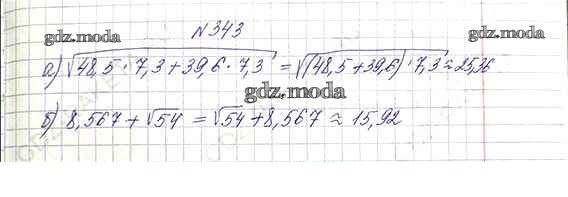 №343
gdz.moda gdz.moda
а) √48,5·7,3+39,6·7,3 = √(48,5+39,6)·7,3 ≈ 25,36
gdz.moda
б) 8,567+√54 = √54+8,567 ≈ 15,92
gdz.moda